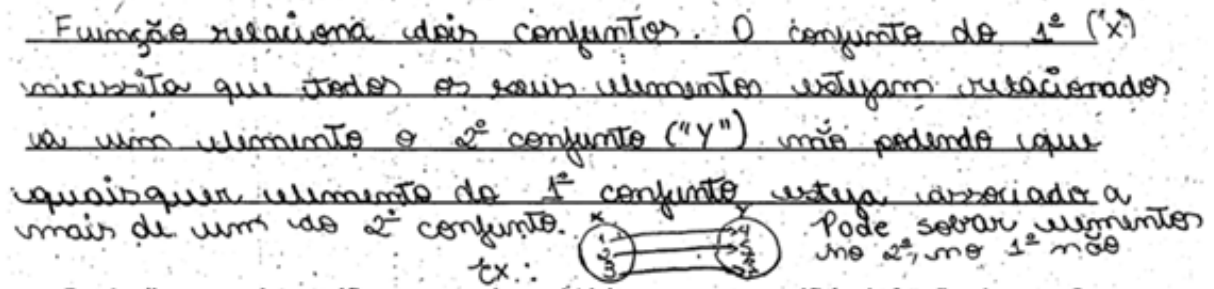 Função relaciona dois conjuntos. O conjunto do 1º ("x")
necessita que todos os seus elementos estejam relacionados
a um elemento o 2º conjunto ("Y") não podendo que
quaisquer elemento do 1º conjunto esteja associado a
mais de um do 2º conjunto.
Ex.:
X Y
1 4
2 5
3
Pode sobrar elementos
no 2º, no 1º não